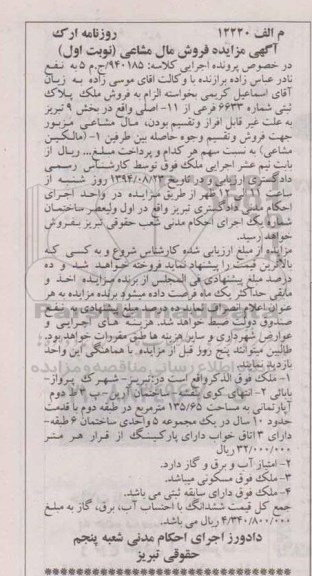 م الف ۱۲۲۲۰ روزنامه ارک
آگهی مزایده فروش مال مشاعی (نوبت اول)
در خصوص پرونده اجرایی کلاسه: ۹۴۰۱۸۵/ج.م ۵ به نفع
نادر عباس زاده برازنده با وکالت اقای موسی زاده به زیان
آقای اسماعیل کریمی بخواسته الزام به فروش ملک پلاک
ثبتی شماره ۶۶۳۳ فرعی از ۱۱- اصلی واقع در بخش ۹ تبریز
به علت غیر قابل افراز وتقسیم بودن، مال مشاعی مزبور
جهت فروش وتقسیم وجوه حاصله بین طرفین ۱- (مالکین
مشاعی) به نسبت سهم هر کدام و پرداخت مبلغ... ریال از
بابت نیم عشر اجرایی ملک فوق توسط کارشناس رسمی
دادگستری ارزیابی و در تاریخ ۱۳۹۴/۰۸/۲۳ روز شنبه از
ساعت ۱۱ الی ۱۲ ظهر از طریق مزایده در واحد اجرای
احکام مدنی دادگستری تبریز واقع در اول ولیعصر ساختمان
شماره یک اجرای احکام مدنی شعب حقوقی تبریز بفروش
خواهد رسید.
مزایده از مبلغ ارزیابی شده کارشناس شروع و به کسی که
بالاترین قیمت را پیشنهاد نماید فروخته خواهد شد و ده
درصد مبلغ پیشنهادی فی المجلس از برنده مزایده اخذ و
مابقی حداکثر یک ماه فرصت داده میشود برنده مزایده به هر
عنوان اعلام انصراف نماید ده درصد مبلغ پیشنهادی به نفع
صندوق دولت ضبط خواهد شد. هزینه های اجرایی و
عوارض شهرداری و سایر هزینه ها طبق مقررات خواهد بود.
طالبین میتوانند پنج روز قبل از مزایده با هماهنگی این واحد
بازدید نمایند.
۱- ملک فوق الذکر واقع است در: تبریز- شهرک پرواز-
بابائی ۲- انتهای کوی بنفشه- ساختمان آرین- پ ۳ ط دوم
آپارتمانی به مساحت ۱۳۵/۶۵ مترمربع در طبقه دوم با قدمت
حدود ۱۰ سال در یک مجموعه ۵ واحدی ساختمان ۶ طبقه-
دارای ۳ اتاق خواب دارای پارکینگ از قرار هر متر
۳۲/۰۰۰/۰۰۰ ریال
۲- امتیاز آب و برق و گاز دارد.
۳- ملک فوق مسکونی میباشد.
۴- ملک فوق دارای سابقه ثبتی می باشد.
جمع کل قیمت ششدانگ با احتساب آب، برق، گاز به مبلغ
۴/۳۴۰/۸۰۰/۰۰۰ ریال می باشد.
دادورز اجرای احکام مدنی شعبه پنجم
حقوقی تبریز